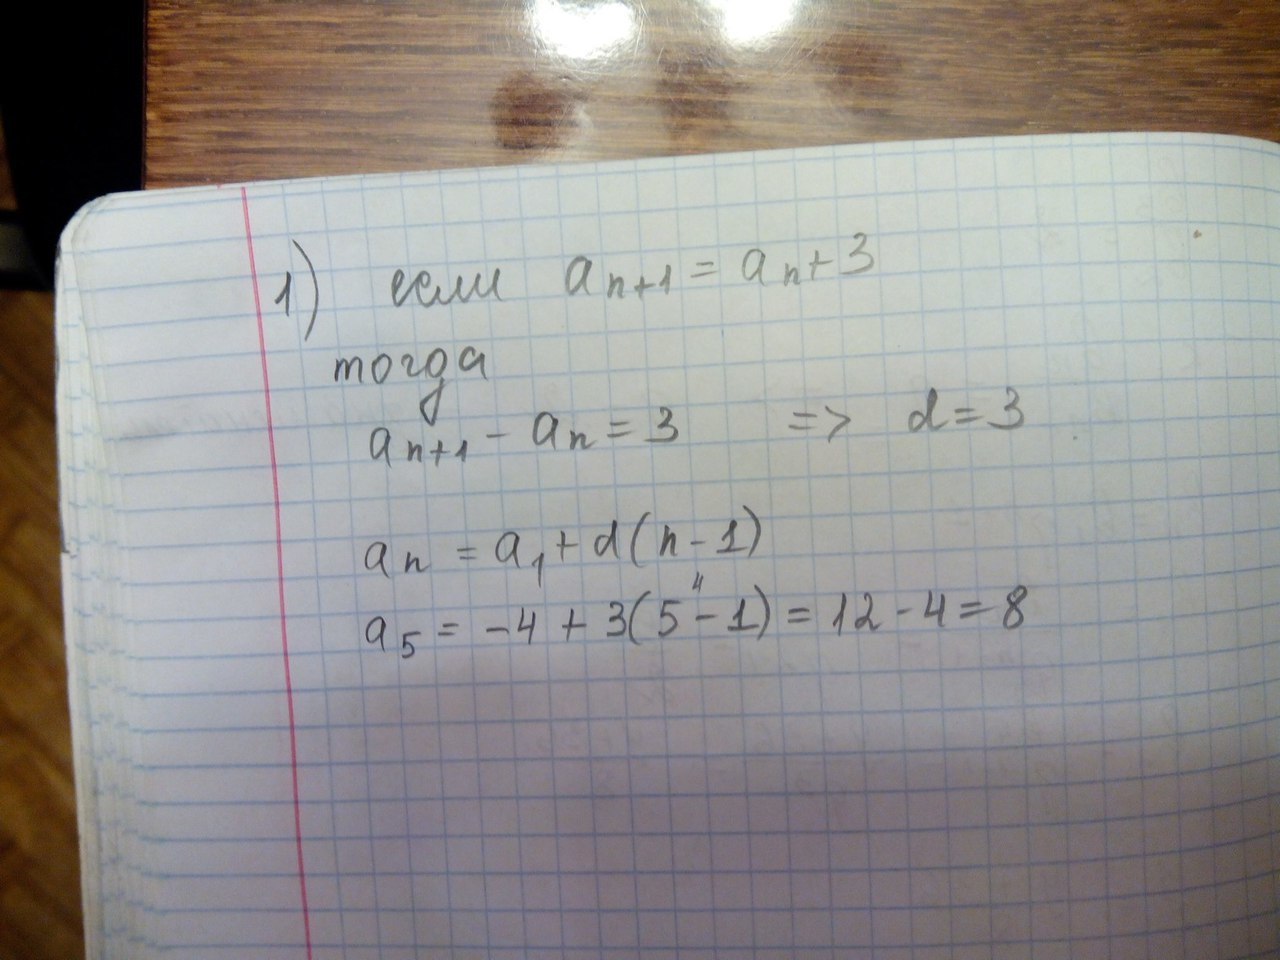 1) если aₙ₊₁ = aₙ + 3
тогда
aₙ₊₁ - aₙ = 3 => d = 3
aₙ = a₁ + d(n-1)
4
a₅ = -4 + 3(5-1) = 12 - 4 = 8